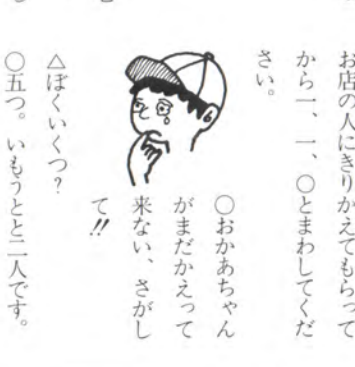 お店の人にきりかえてもらって
から一、一、○とまわしてくだ
さい。
○おかあちゃん
がまだかえって
来ない、さがし
て!!
△ぼくいくつ?
○五つ。いもうとと二人です。